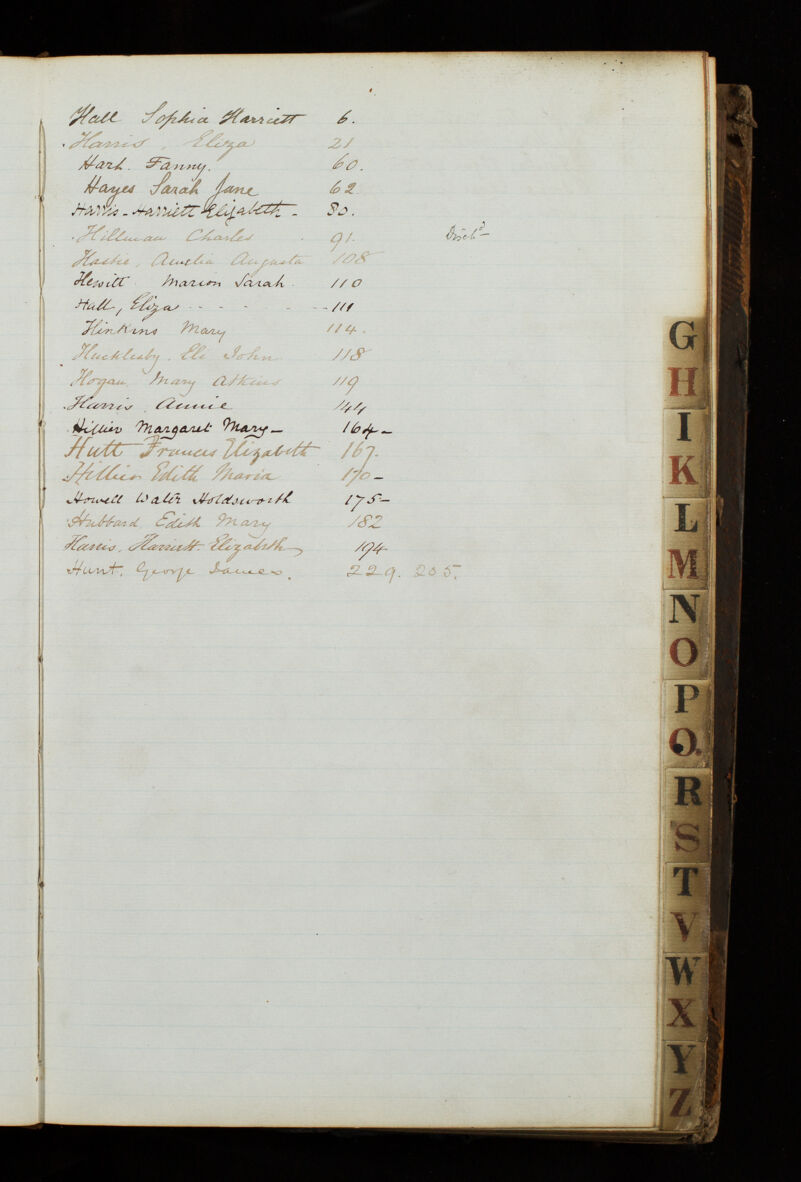 Hall Sophia Harriett 6.
Harris, Eliza 21
Hart. Fanny. 60.
Hayes Sarah Jane 62
Harris - Harriett Elizabeth - 80.
Hillman Charles 91. Disch^d
Hastie, Amelia Augusta 108
Hewitt Marion Sarah 110
Hall, Eliza - - - - - - 111
Hinkins Mary 114.
Hucklesby. Eli John 118
Hogan Mary Atkins 119
Harris Annie 144
Hillier Margaret Mary - 164 -
Hutt Frances Elizabeth 167.
Hillier Edith Maria 170 -
Howell Walter Holdsworth 175 -
Hubbard Edith Mary 182
Harris, Harriett Elizabeth 194
Hunt, George James. 229. 205.
G
H
I
K
L
M
N
O
P
Q.
R
S
T
V
W
X
Y
Z